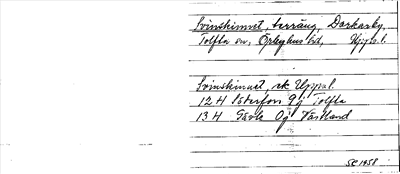 Svinskinnet, terräng, Darkarby,
Tolfta sn, Örbyhus hd, Uppsl.
Svinskinnet, ek Uppsl.
12 H Österfors 9g Tolfta
13 H Gävle 0g Västland
SC 1958